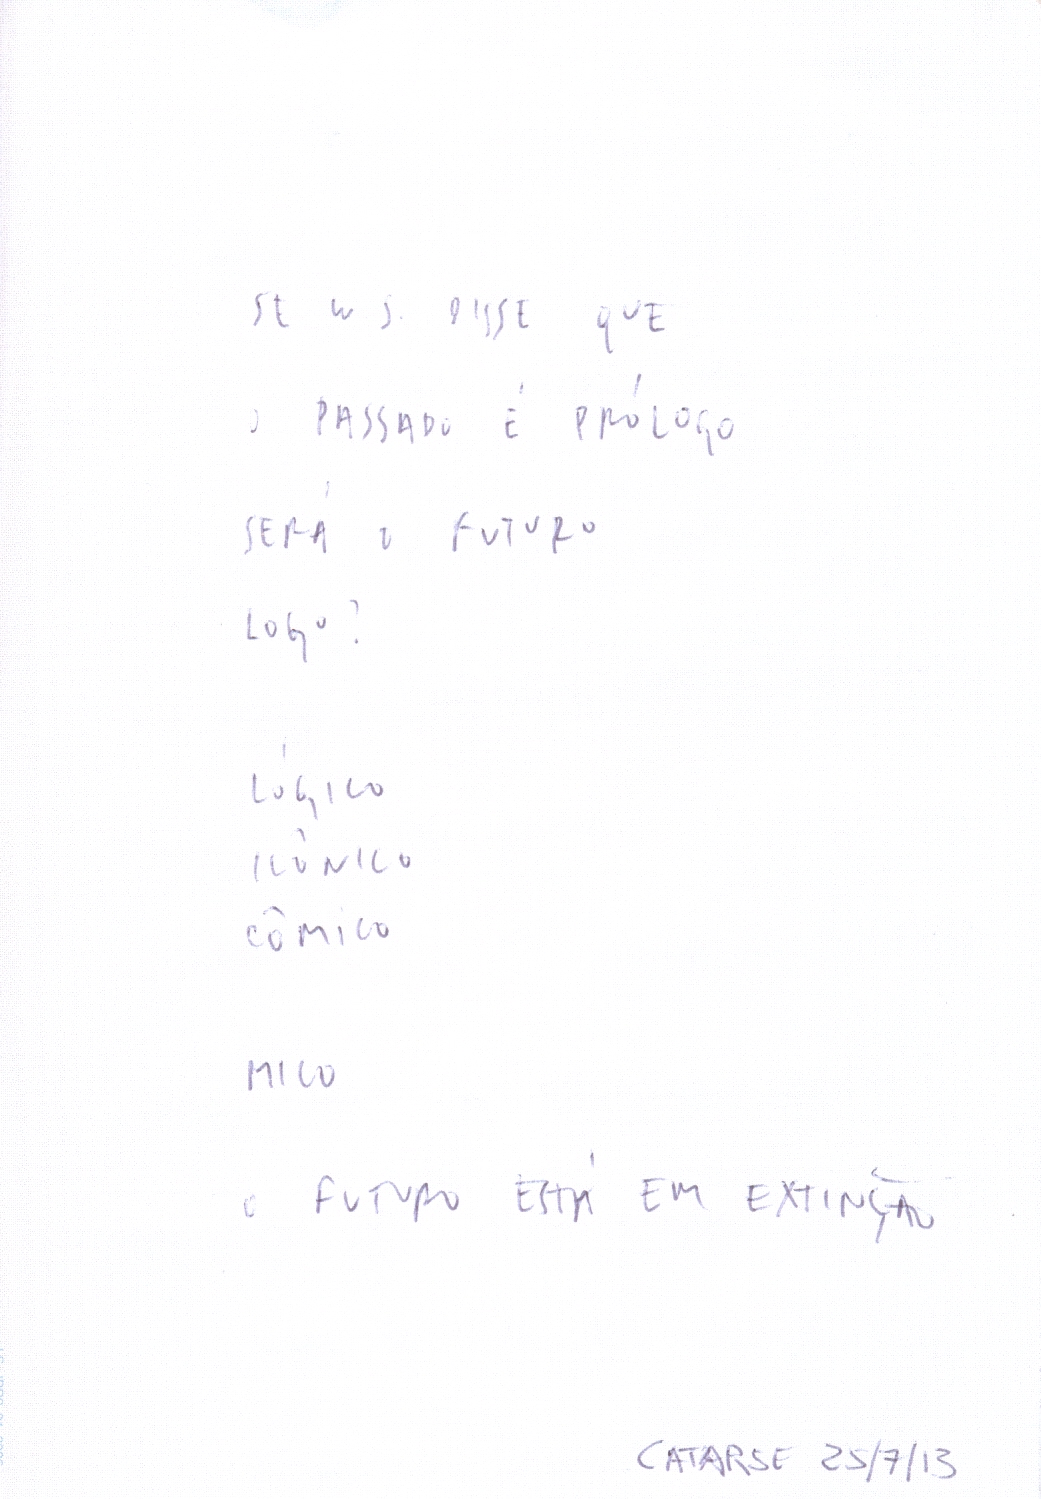 SE W S. DISSE QUE
O PASSADO É PRÓLOGO
SERÁ O FUTURO
LOGO?
LÓGICO
ICÔNICO
CÔMICO
MICO
O FUTURO ESTÁ EM EXTINÇÃO
CATARSE 25/7/13